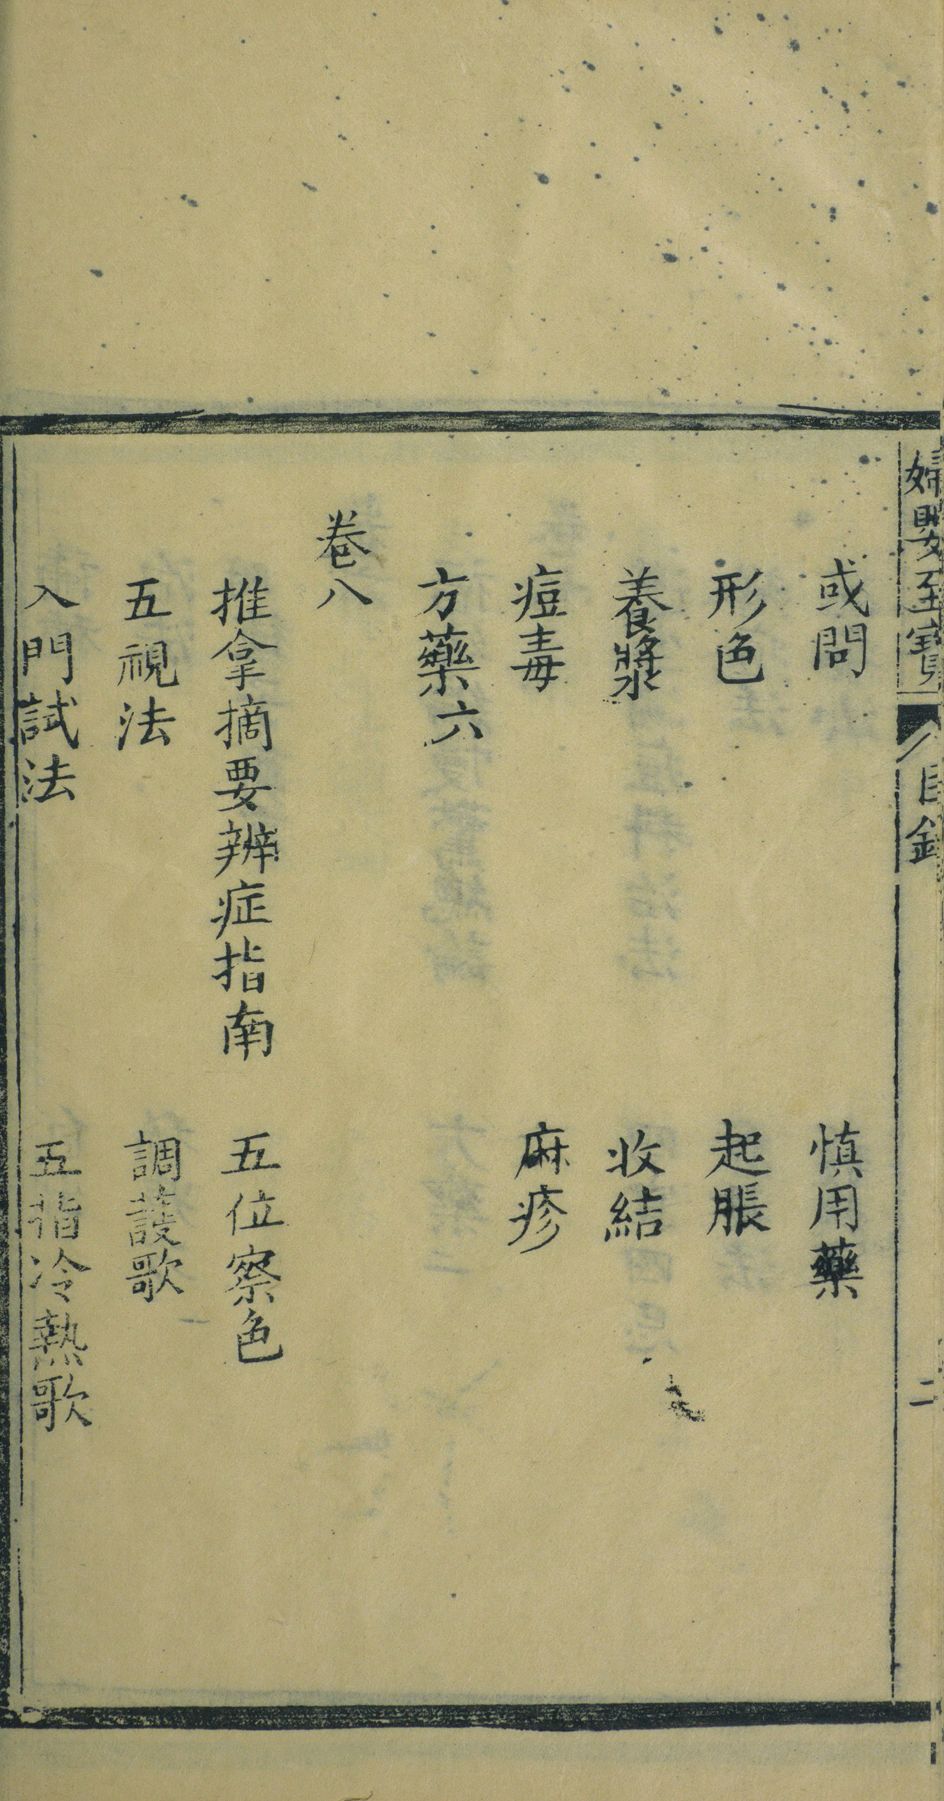 婦嬰至寶
目錄
二
或問　慎用藥
形色　起脹
養漿　收結
痘毒　麻疹
方藥六
卷八
推拿摘要辨症指南　五位察色
五視法　調護歌
入門試法　五指冷熱歌